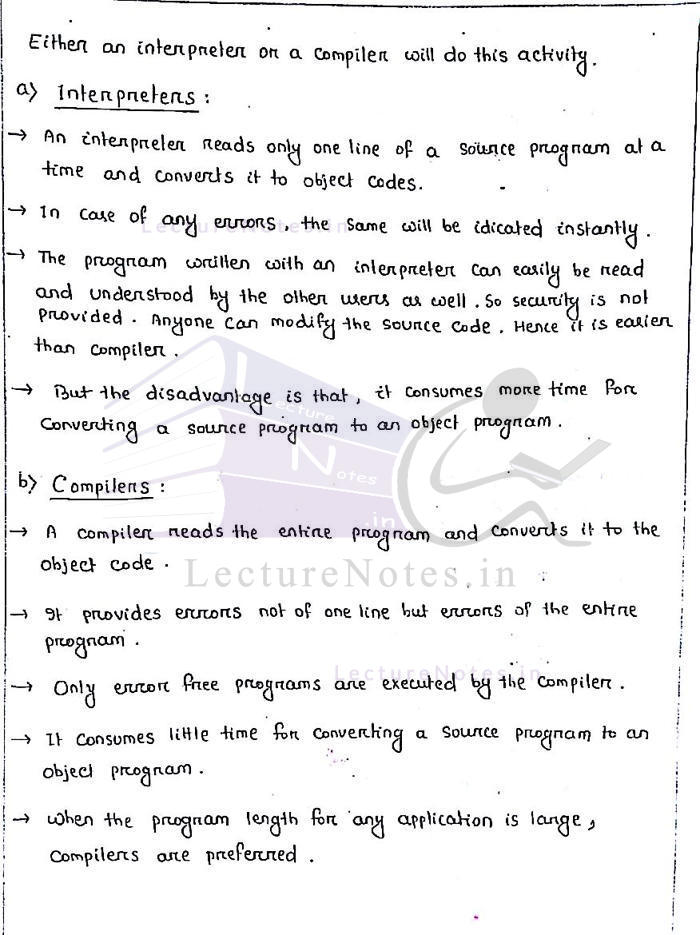 Either an interpreter or a compiler will do this activity.
a) Interpreters :
→ An interpreter reads only one line of a source program at a
time and converts it to object codes.
→ In case of any errors, the same will be idicated instantly.
LectureNotes.in
→ The program written with an interpreter can easily be read
and understood by the other users as well. So security is not
provided. Anyone can modify the source code. Hence it is easier
than compiler.
→ But the disadvantage is that, it consumes more time for
Lecture
converting a source program to an object program.
Notes
b) Compilers :
.in
→ A compiler reads the entire program and converts it to the
object code.
LectureNotes.in
→ It provides errors not of one line but errors of the entire
program.
LectureNotes.in
→ Only error free programs are executed by the compiler.
→ It consumes little time for converting a source program to an
object program.
→ when the program length for any application is large,
compilers are preferred.